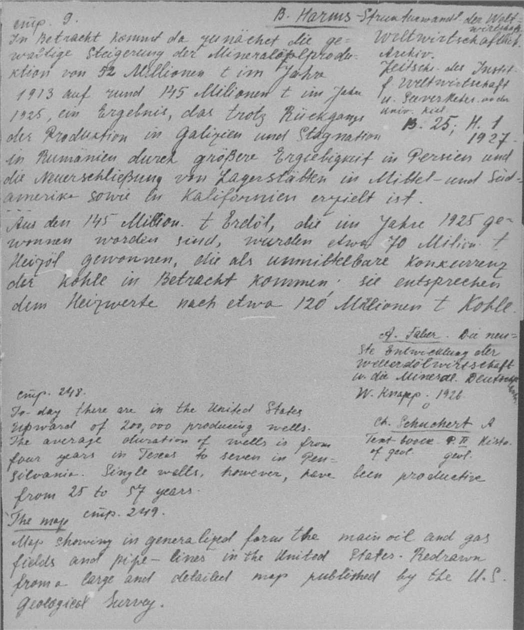 стр. 9.
B. Harms - Strukturwandl. der Weltwirtschaft
Weltwirtschaftlich.
Archiv.
Zeitschr. des Instit.
f. Weltwirtschaft
u. Seeverkehr. an der
Univ. Kiel
B. 25; H. 1
1927.
In Betracht kommt da zunächst die ge-
waltige Steigerung der Mineralölprodu-
ktion von 52 Millionen t im Jahre
1913 auf rund 145 Millionen t im Jahre
1925, ein Ergebnis, das trotz Rückgangs
der Produktion in Galizien und Stagnation
in Rumänien durch größere Ergiebigkeit in Persien und
die Neuerschließung von Lagerstätten in Mittel- und Süd-
amerika sowie in Kalifornien erzielt ist.
Aus den 145 Million. t Erdöl, die im Jahre 1925 ge-
wonnen worden sind, wurden etwa 70 Million t
Heizöl gewonnen, die als unmittelbare Konkurrenz
der Kohle in Betracht kommen; sie entsprechen
dem Heizwerte nach etwa 120 Millionen t Kohle.
A. Faber. Die neu-
ste Entwicklung der
Welterdölwirtschaft
in die Mineral. Deutsch
W. Knapp. 1926
стр. 248.
To day there are in the United States
upward of 200,000 producing wells.
The average duration of wells is from
four years in Texas to seven in Pen-
silvania. Single wells, however, have been productive
from 25 to 57 years.
Ch. Schuchert A
Text-book P. II Histo.
of geol. geol.
The map стр. 249.
Map showing in generalized form the main oil and gas
fields and pipe-lines in the United States. Redrawn
from a large and detailed map published by the U.S.
Geological Survey.